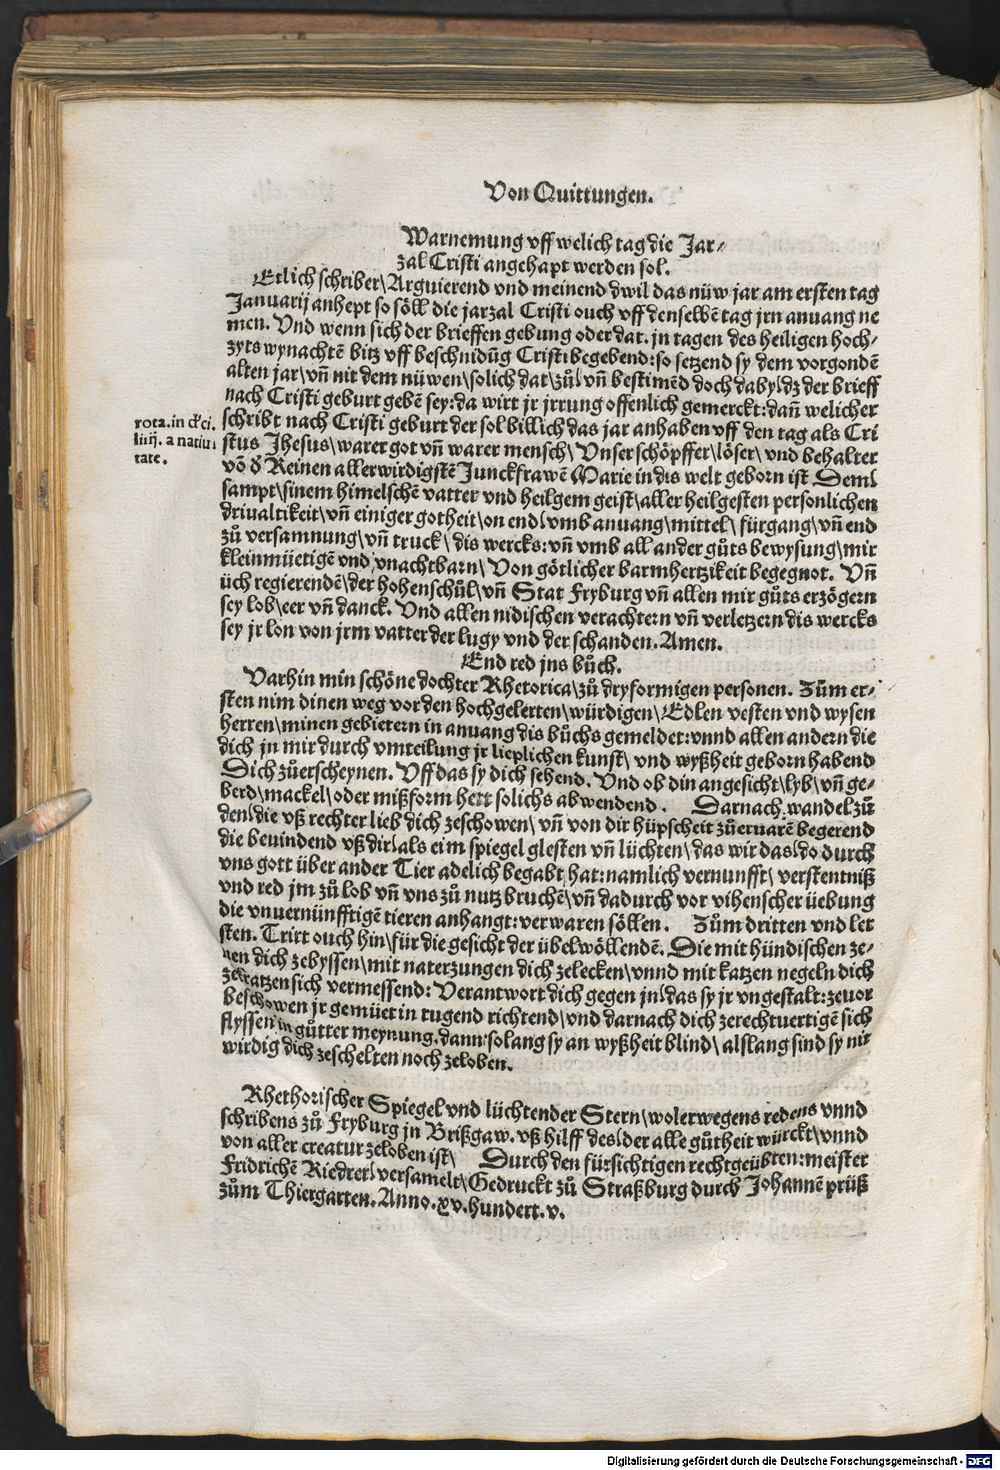 Von Quittungen.
Warnemung vff welich tag die Jar⸗
zal Cristi angehapt werden sol.
Etlich schriber\ Arguierend vnd meinend dwil das nüw jar am ersten tag
Januarij anhept so söll die jarzal Cristi ouch vff denselbē tag jrn anuang ne
men. Vnd wenn sich der brieffen gebung oder dat. jn tagen des heiligen hoch⸗
zyts wynachtē bitz vff beschnidūg Cristi begebend: so setzend sy dem vorgondē
alten jar\ vn̄ nit dem nüwen\ solich dat\ zů\ vn̄ bestimēd doch daby\ dz der brieff
nach Cristi geburt gebē sey: da wirt jr jrrung offenlich gemerckt: dan̄ welicher
schribt nach Cristi geburt der sol billich das jar anhaben vff den tag als Cri
stus Jhesus\ warer got vn̄ warer mensch\ Vnser schöpffer\ löser\ vnd behalter
rota. in cl'ci.
liiij. a natiui
tate.
vō d' Reinen allerwirdigstē Junckfrawē Marie in dis welt geborn ist Dem\
sampt\ sinem himelschē vatter vnd heilgem geist\ aller heilgesten personlichen
driualtikeit\ vn̄ einiger gotheit\ on end\ vmb anuang\ mittel\ fürgang\ vn̄ end
zů versamnung\ vn̄ truck\ dis wercks: vn̄ vmb all ander gůts bewysung\ mir
kleinmüetigē vnd vnachtbarn\ Von götlicher barmhertzikeit begegnot. Vn̄
üch regierendē\ der hohenschůl\ vn̄ Stat Fryburg vn̄ allen mir gůts erzögern
sey lob\ eer vn̄ danck. Vnd allen nidischen verachtern vn̄ verletzern dis wercks
sey jr lon von jrm vatter der lugy vnd der schanden. Amen.
End red jns bůch.
Varhin min schöne dochter Rhetorica\ zů dryformigen personen. Zům er⸗
sten nim dinen weg vor den hochgelerten\ würdigen\ Edlen vesten vnd wysen
herren\ minen gebietern in anuang dis bůchs gemeldet: vnnd allen andern die
dich jn mir durch vmteilung jr lieplichen kunst\ vnd wyßheit geborn habend
Dich zůerscheynen. Vff das sy dich sehend. Vnd ob din angesicht\ lyb\ vn̄ ge⸗
berd\ mackel\ oder mißform hett solichs abwendend. Darnach wandel zů
den\ die vß rechter lieb dich zeschowen\ vn̄ von dir hüpscheit zůeruarē begerend
die beuindend vß dir\ als eim spiegel glesten vn̄ lüchten\ das wir das\ do durch
vns gott über ander Tier adelich begabt hat: namlich vernunfft\ verstentniß
vnd red jm zů lob vn̄ vns zů nutz bruchē\ vn̄ dadurch vor vihenscher üebung
die vnuernünfftigē tieren anhangt: verwaren söllen. Zům dritten vnd let
sten. Tritt ouch hin\ für die gesicht der übelwöllendē. Die mit hündischen ze⸗
nen dich zebyssen\ mit naterzungen dich zelecken\ vnnd mit katzen negeln dich
zekratzen sich vermessend: Verantwort dich gegen jn\ das sy jr vngestalt: zeuor
beschowen jr gemüet in tugend richtend\ vnd darnach dich zerechtuertigē sich
flyssen in gůtter meynung. dann solang sy an wyßheit blind\ alslang sind sy nit
wirdig dich zeschelten noch zeloben.
Rhethorischer Spiegel vnd lüchtender Stern\ wolerwegens redens vnnd
schribens zů Fryburg jn Brißgaw. vß hilff des\ der alle gůtheit würckt\ vnnd
von aller creatur zeloben ist\ Durch den fürsichtigen rechtgeübten: meister
Fridrichē Riedrer\ versamelt\ Gedruckt zů Straßburg durch Johannē prüß
zům Thiergarten. Anno. xv. hundert. v.
Digitalisierung gefördert durch die Deutsche Forschungsgemeinschaft - DFG